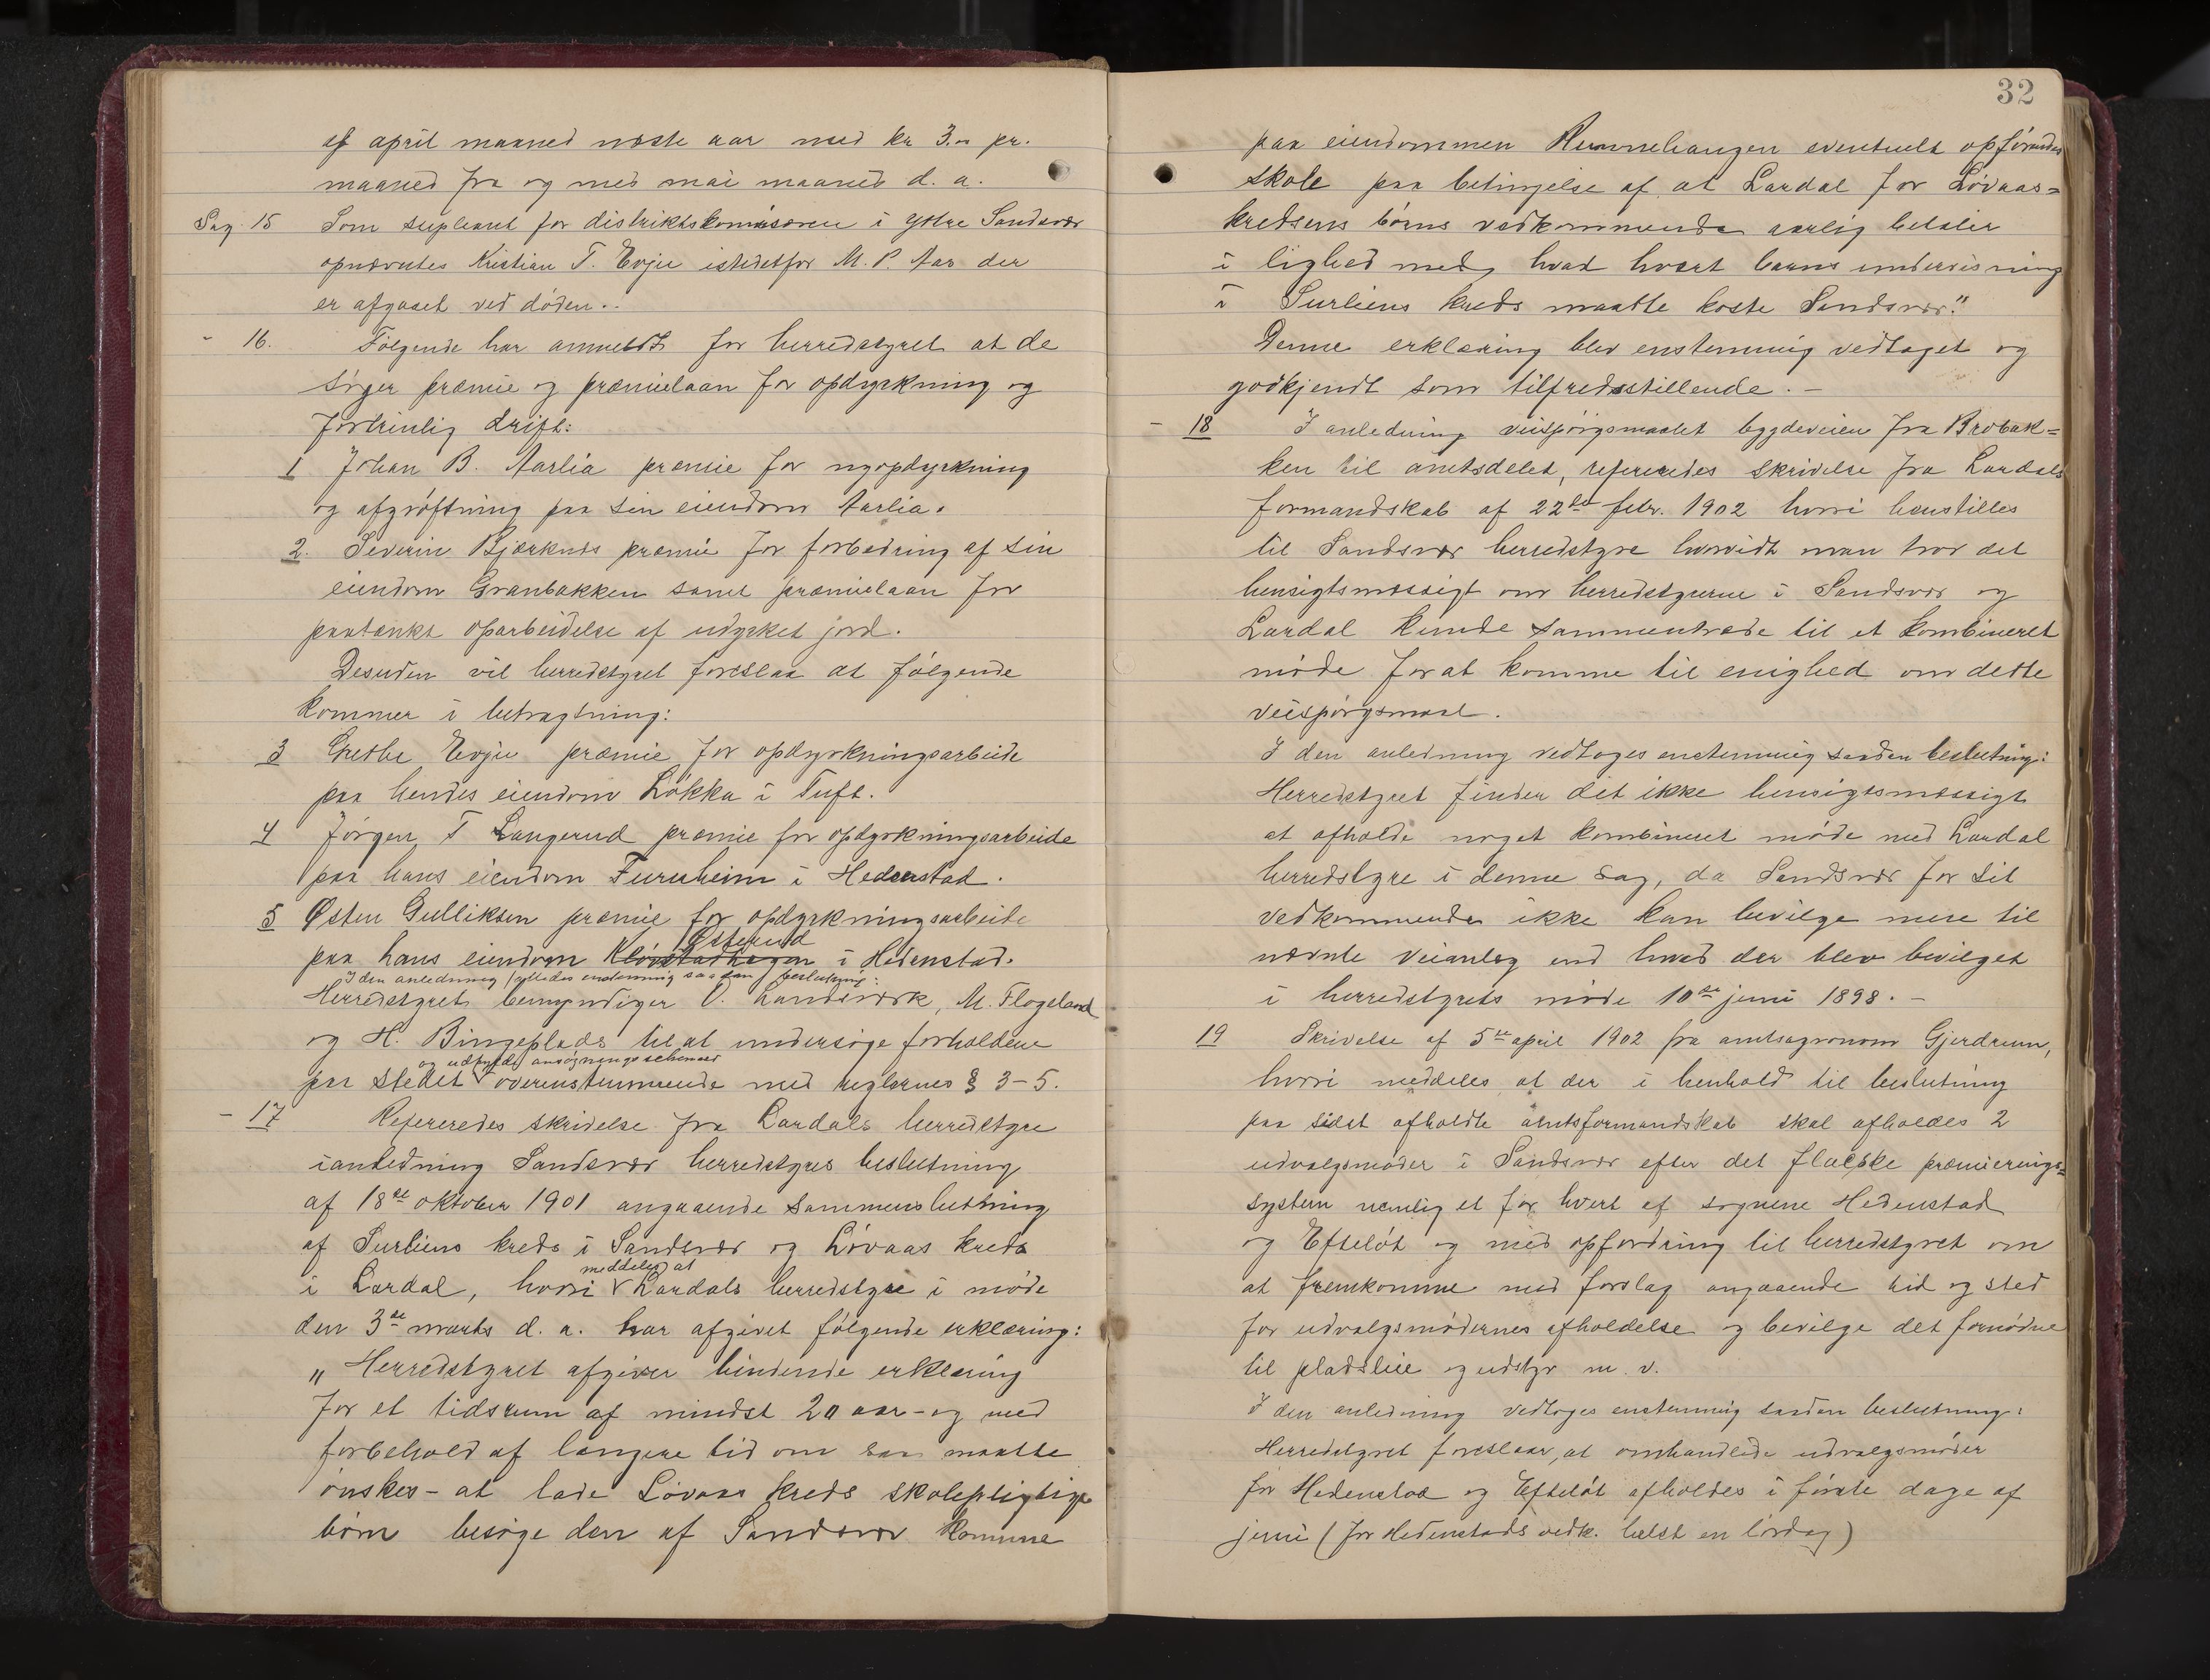 af april maaned næste aar med kr 3.00 pr.
maaned fra og med mai maaned d. a.
Sag 15 Som supleant for distriktskomisæren i ytre Sandsvær
opnævntes Kristian T. Evju istedetfor M. P. Aas der
er afgaaet ved døden.-
- 16. Følgende har anmeldt for herredstyret at de
søger præmie og præmielaan for opdyrkning og
fortrinlig drift:
1 Johan B. Aarlia præmie for nyopdyrkning
og afgrøftning paa sin eiendom Aarlia.
2. Severin Bjerknes præmie for forbedring af sin
eiendom Granbakken samt præmielaan for
paatænkt oparbeidelse af udyrket jord.
Desuden vil herredstyret foreslaa at følgende
kommer i betragtning:
3 Grethe Evju præmie for opdyrkningsarbeide
paa hendes eiendom Løkka i Tuft.
4 Jørgen T Langerud præmie for opdyrkningsarbeide
paa hans eiendom Furuheim i Hedenstad.
5 Østen Gulliksen præmie for opdyrkningsarbeide
Østerud
paa hans eiendom Klovstadhagen i Hedenstad.
I den anledning fattedes enstemmig saadan beslutning:
Herredstyret bemyndiger O. Landsværk, M. Flogeland
og H. Bingeplads til at undersøge forholdene
og udfylde ansøgningsschemaer
paa stedet overensstemmende med reglernes § 3-5.
- 17 Refereredes skrivelse fra Lardals herredstyre
ianledning Sandsvær herredstyres beslutning
af 18de oktober 1901 angaaende sammenslutning
af Surliens kreds i Sandsvær og Løvaas kreds
meddeles at
i Lardal, hvori Lardals herredstyre i møde
den 3de marts d. a. har afgivet følgende erklæring:
„Herredstyret afgiver bindende erklæring
for et tidsrum af mindst 20 aar - og med
forbehold af længere tid om saa maatte
ønskes - at lade Løvaas kreds skolepligtige
børn besøge den af Sandsvær komune
32
paa eiendommen opførendes
skole paa betingelse af at Lardal for Løvaas=
kredsens børns vedkommende aarlig betaler
i lighed med, hvad hvert barns undervisning
i Surliens kreds maatte koste Sandsvær."
Denne erklæring blev enstemmig vedtaget og
godkjendt som tilfredsstillende. -
- 18 I anledning veispørgsmaalet bygdeveien fra Brobak=
ken til amtsdelet, refereredes skrivelse fra Lardals
formandskab af 22de febr. 1902 hvori henstilles
til Sandsvær herredstyre hvorvidt man tror det
hensigtsmæssigt om herredstyrerne i Sandsvær og
Lardal kunde sammentræde til et kombineret
møde for at komme til enighed om dette
veispørgsmaal.
I den anledning vedtoges enstemmig saadan beslutning:
Herredstyret finder det ikke hensigtsmæssigt
at afholde noget kombineret møde med Lardal
herredstyre i denne sag, da Sandsvær for sit
vedkommende ikke kan bevilge mere til
nævnte veianlæg end hvad der blev bevilget
i herredstyrets møde 10de juni 1898. -
19 Skrivelse af 5te april 1902 fra amtsagronom Gjerdrum,
hvori meddeles at der i henhold til beslutning
paa sidst afholdte amtsformandskab skal afholdes 2
udvalgsmøder i Sandsvær efter det præmierings=
system nemlig et for hvert af sognene Hedenstad
og Efteløt og med opfordring til herredstyret om
at fremkomme med forslag angaaende tid og sted
for udvalgsmødernes afholdelse og bevilge det fornødne
til pladsleie og udstyr m. v.
I den anledning vedtoges enstemmig saadan beslutning:
Herredstyret foreslaar, at omhandlede udvalgsmøder
for Hedenstad og Efteløt afholdes i første dage af
juni (for Hedenstads vedk. helst en lørdag)